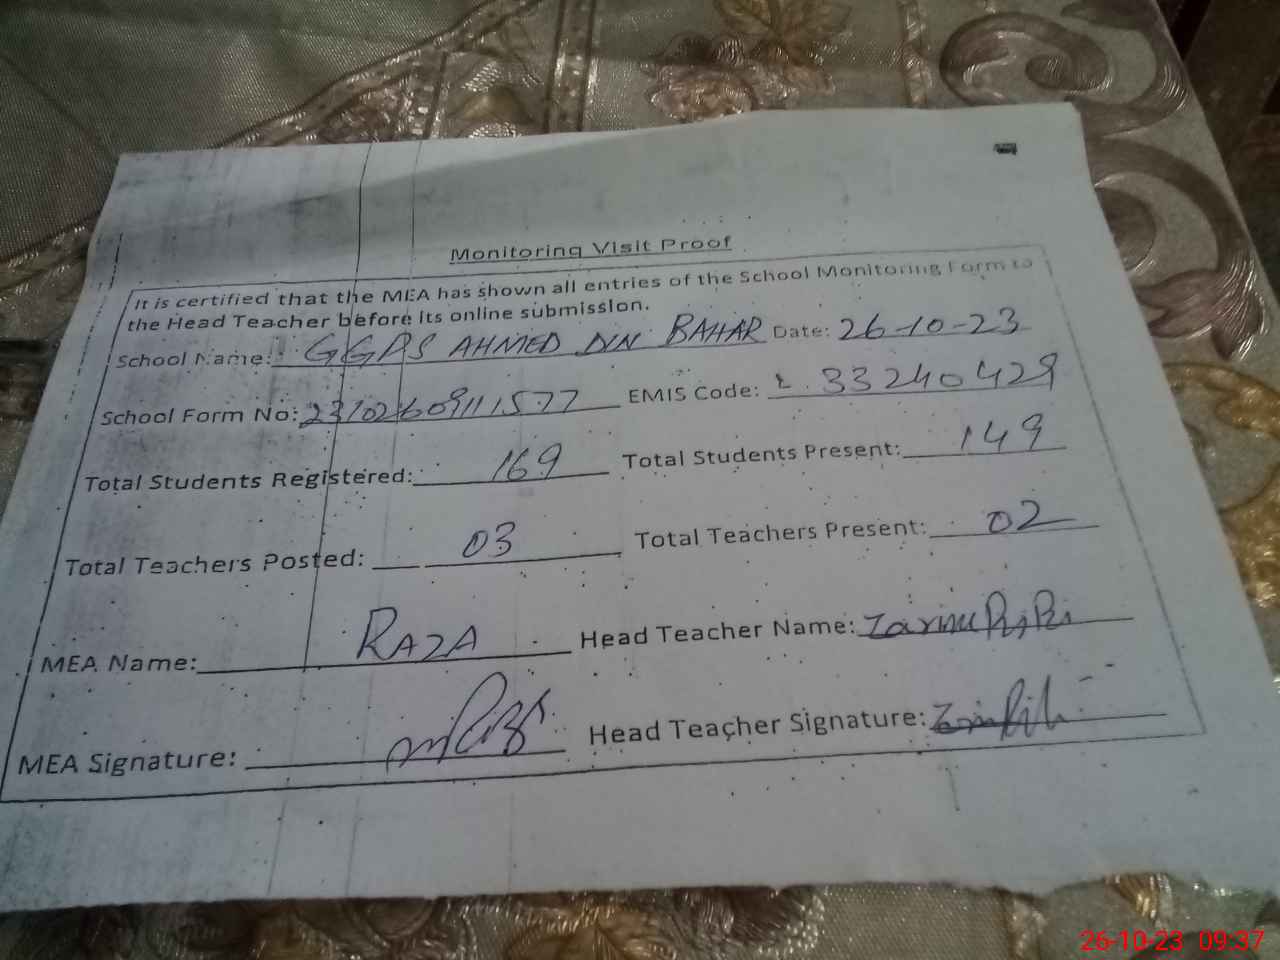 Monitoring Visit Proof
It is certified that the MEA has shown all entries of the School Monitoring Form to
the Head Teacher before its online submission.
School Name: GGPS AHMED DIN BAHAR Date: 26-10-23
School Form No: 23102609111577 EMIS Code: 33240429
Total Students Registered: 169 Total Students Present: 149
Total Teachers Posted: 03 Total Teachers Present: 02
MEA Name: RAZA Head Teacher Name:
MEA Signature: Head Teacher Signature:
26-10-23 09:37